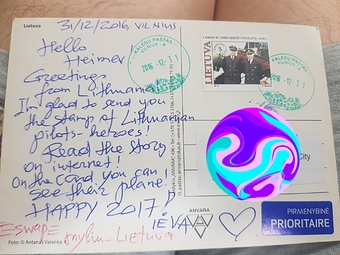 Lietuva
31/12/2016, VILNIUS
Hello
Heimer
Greetings
from Lithuania!
I'm glad to send you
the stamp of Lithuanian
pilots-heroes!
Read the story
on internet!
On the card you can
see their plane!
HAPPY 2017!
IEVA
LIETUVA
KALĖDŲ PAŠTAS
VILNIUS
2016-12-31
KALĖDŲ PAŠTAS
2016-12-31
City
ANVARA
PIRMENYBINĖ
PRIORITAIRE
Foto: © Antanas Varanka